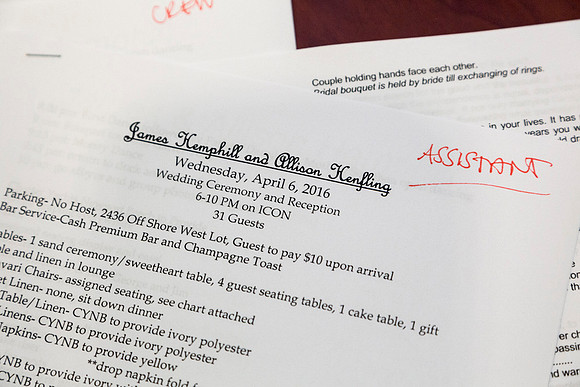 CREW
Couple holding hands face each other.
Bridal bouquet is held by bride till exchanging of rings.
in your lives. It has
years you w
ASSISTANT
James Hemphill and Allison Henfling
Wednesday, April 6, 2016
Wedding Ceremony and Reception
6-10 PM on ICON
31 Guests
Parking- No Host, 2436 Off Shore West Lot, Guest to pay $10 upon arrival
Bar Service-Cash Premium Bar and Champagne Toast
ables- 1 sand ceremony/sweetheart table, 4 guest seating tables, 1 cake table, 1 gift
le and linen in lounge
vari Chairs- assigned seating, see chart attached
et Linen- none, sit down dinner
Table/Linen- CYNB to provide ivory polyester
Linens- CYNB to provide ivory polyester
Napkins- CYNB to provide yellow
**drop napkin fold f
CYNB to provide ivory wi
YNB to provide